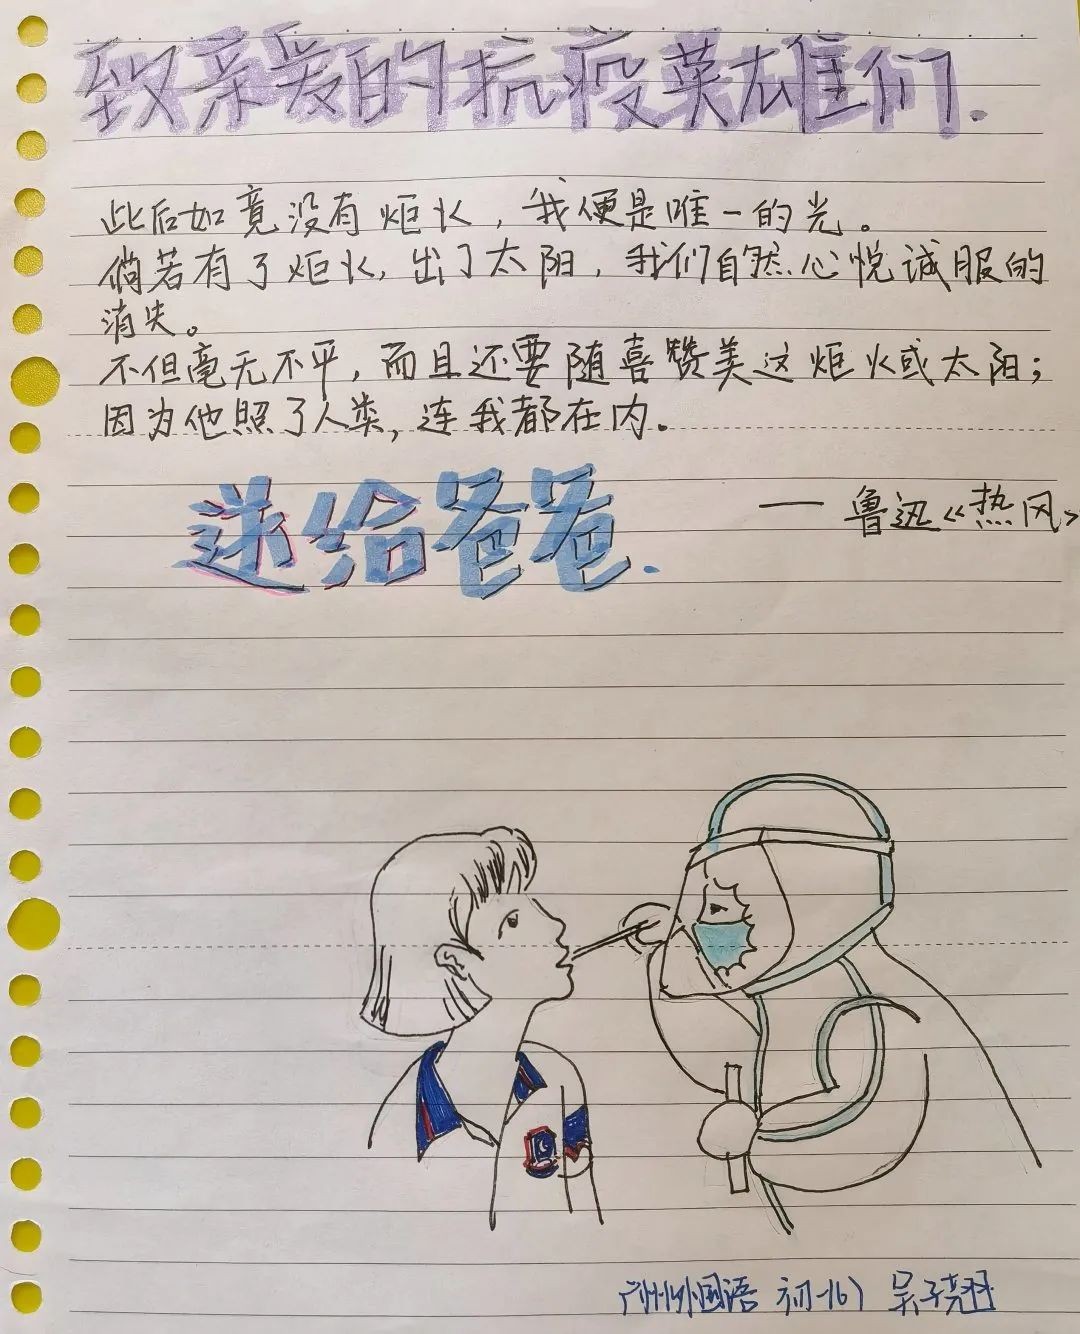 致亲爱的抗疫英雄们.
此后如竟没有炬火，我便是唯一的光。
倘若有了炬火，出了太阳，我们自然心悦诚服的
消失。
不但毫无不平，而且还要随喜赞美这炬火或太阳；
因为他照了人类，连我都在内。
——鲁迅《热风》
送给爸爸.
广州外国语 初一(6) 吴子尧